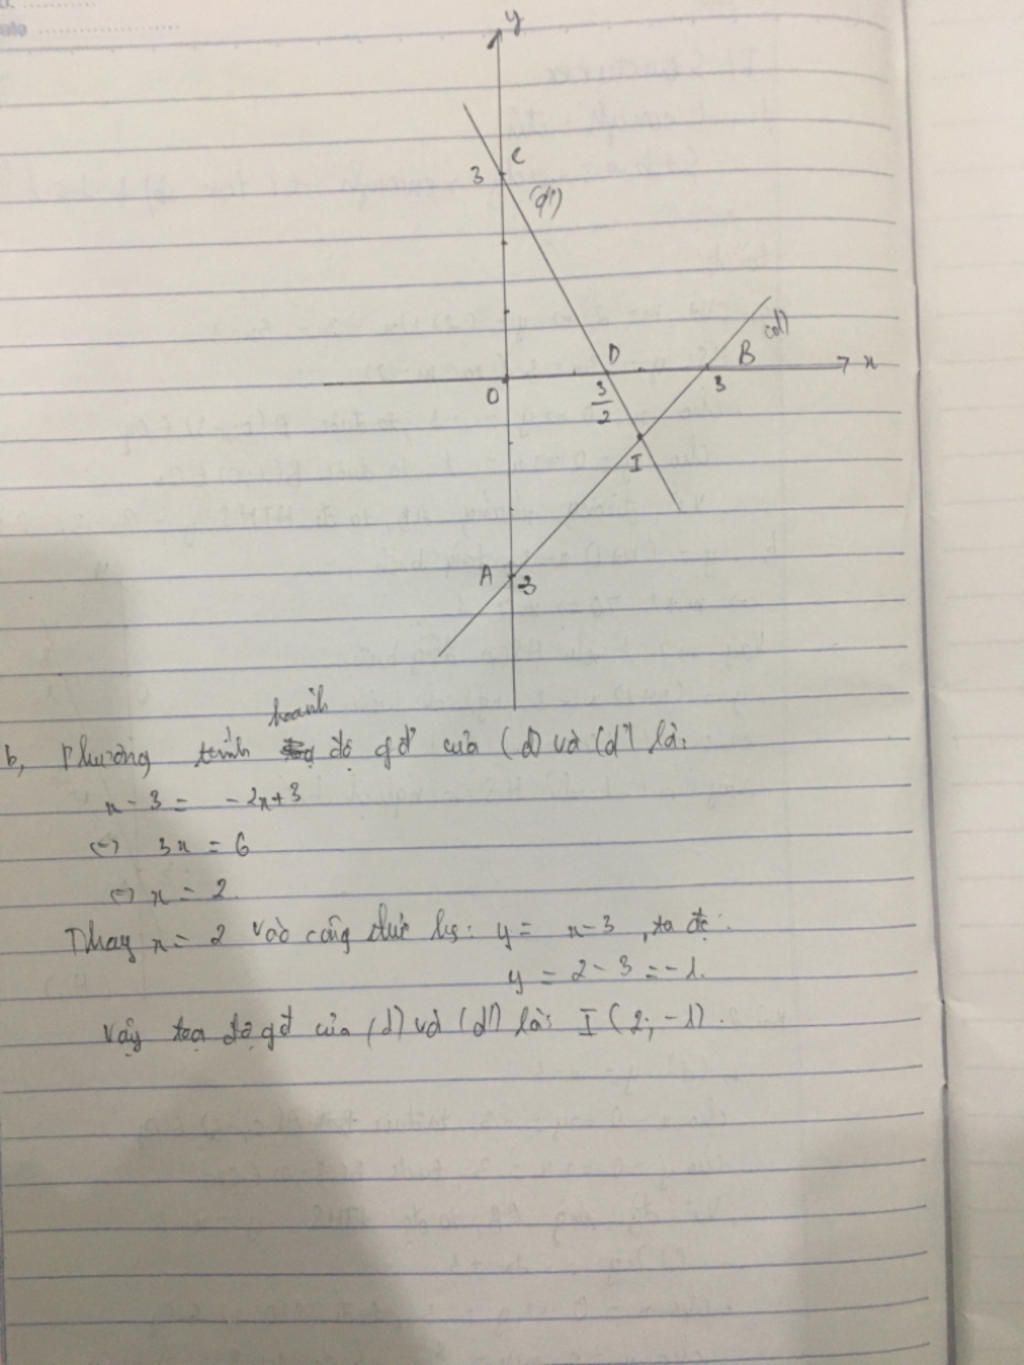 ate
y
C
3
(d')
(d)
D
B
x
O
3
3
2
I
A
-3
hoành
b, Phương trình độ gđ của (d) và (d') là:
x - 3 = -2x+3
<=> 3x = 6
<=> x = 2.
Thay x = 2 vào công thức hs: y = x-3, ta đc:
y = 2 - 3 = -1.
Vậy tọa độ gđ của (d) và (d') là: I (2; -1).